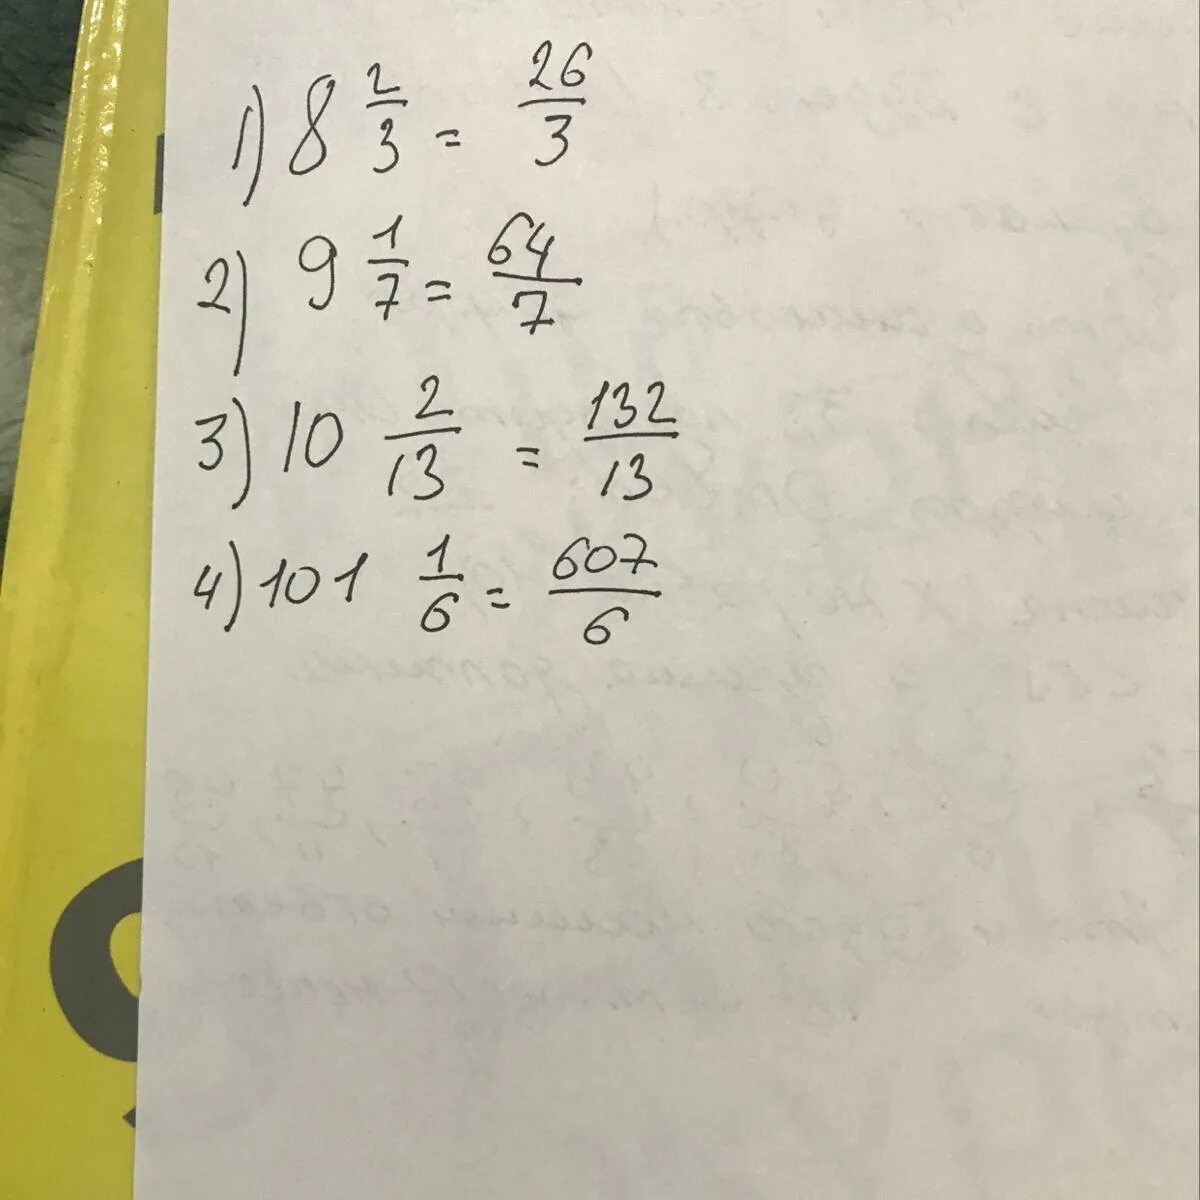 1) 8 2/3 = 26/3
2) 9 1/7 = 64/7
3) 10 2/13 = 132/13
4) 101 1/6 = 607/6